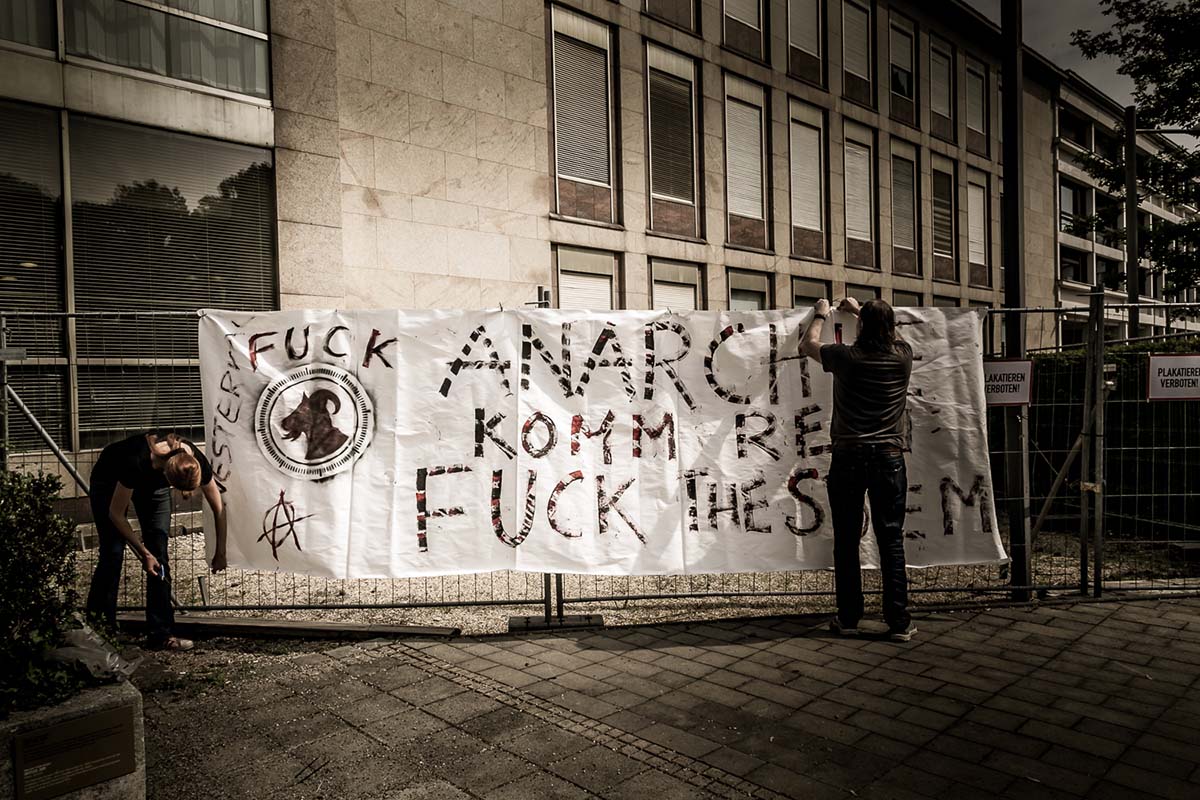 FUCK
ANARCHIE
KOMM RE
FUCK THE S EM
PLAKATIEREN
VERBOTEN!
PLAKATIEREN
VERBOTEN!